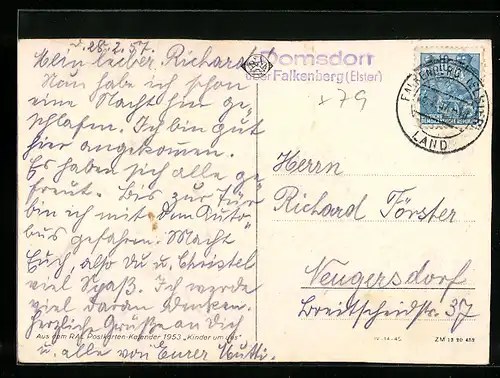 d. 28.2.57.
Mein lieber Richard!
Nun habe ich schon
eine Nacht hin ge
schlafen. Ich bin gut
hier angekommen.
Es haben sich alle ge
freut. Bis zur Tür
bin ich mit dem Auto"
bus gefahren. Macht
Euch, also Du u. Christel
viel Spaß. Ich werde
viel daran denken.
Herzliche Grüße an Dich
u. alle von Eurer Mutti.
Aus dem RAL Postkarten-Kalender 1953 „Kinder um uns"
Domsdort
über Falkenberg (Elster)
x 79
FALKENBERG (ELSTER)
LAND
DEUTSCHE
DEMOKRATISCHE
Herrn
Richard Förster
Neugersdorf
Breitscheidstr. 37
ZM 13 20 452